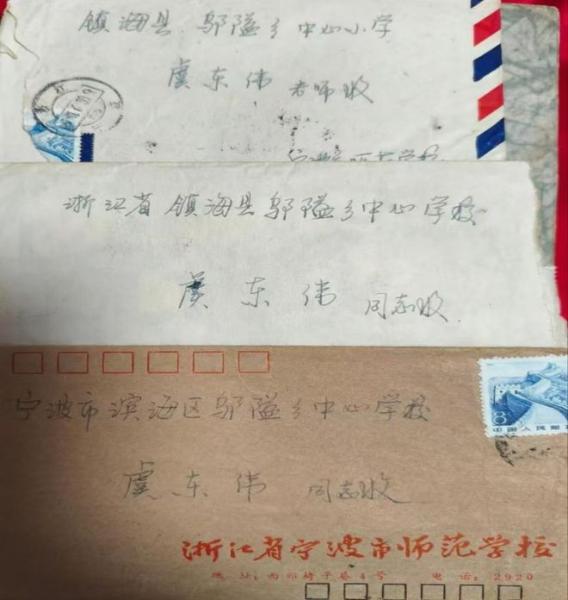 镇海县 邬隘乡中心小学
虞东伟 老师收
浙江省镇海县邬隘乡中心学校
虞东伟 同志收
8
中国人民邮
宁波市滨海区邬隘乡中心学校
虞东伟 同志收
浙江省宁波市师范学校
地址:西郊 4号 电话:2920